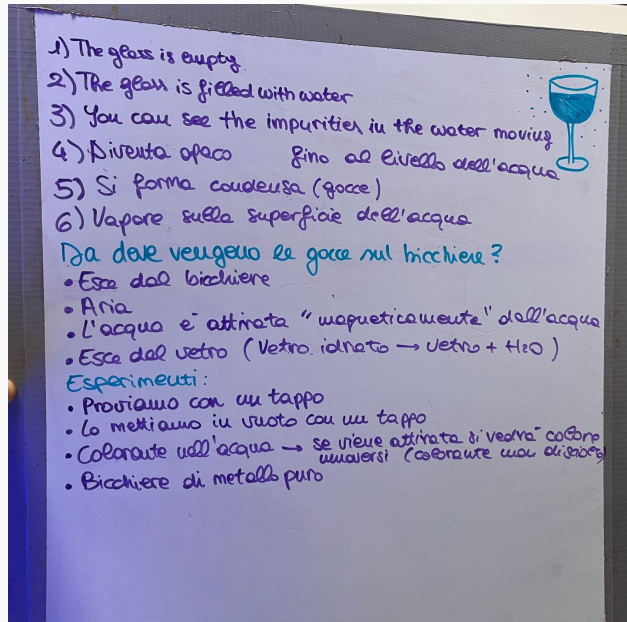 1) The glass is empty
2) The glass is filled with water
3) You can see the impurities in the water moving
4) Diventa opaco fino al livello dell'acqua
5) Si forma condensa (gocce)
6) Vapore sulla superficie dell'acqua
Da dove vengono le gocce sul bicchiere?
• Esce dal bicchiere
• Aria
• L'acqua è attirata "magneticamente" dall'acqua
• Esce dal vetro (Vetro idrato → vetro + H2O)
Esperimenti:
• Proviamo con un tappo
• Lo mettiamo in vuoto con un tappo
• Colorante nell'acqua → se viene attirata si vedrà colore
muoversi (colorante non
• Bicchiere di metallo puro